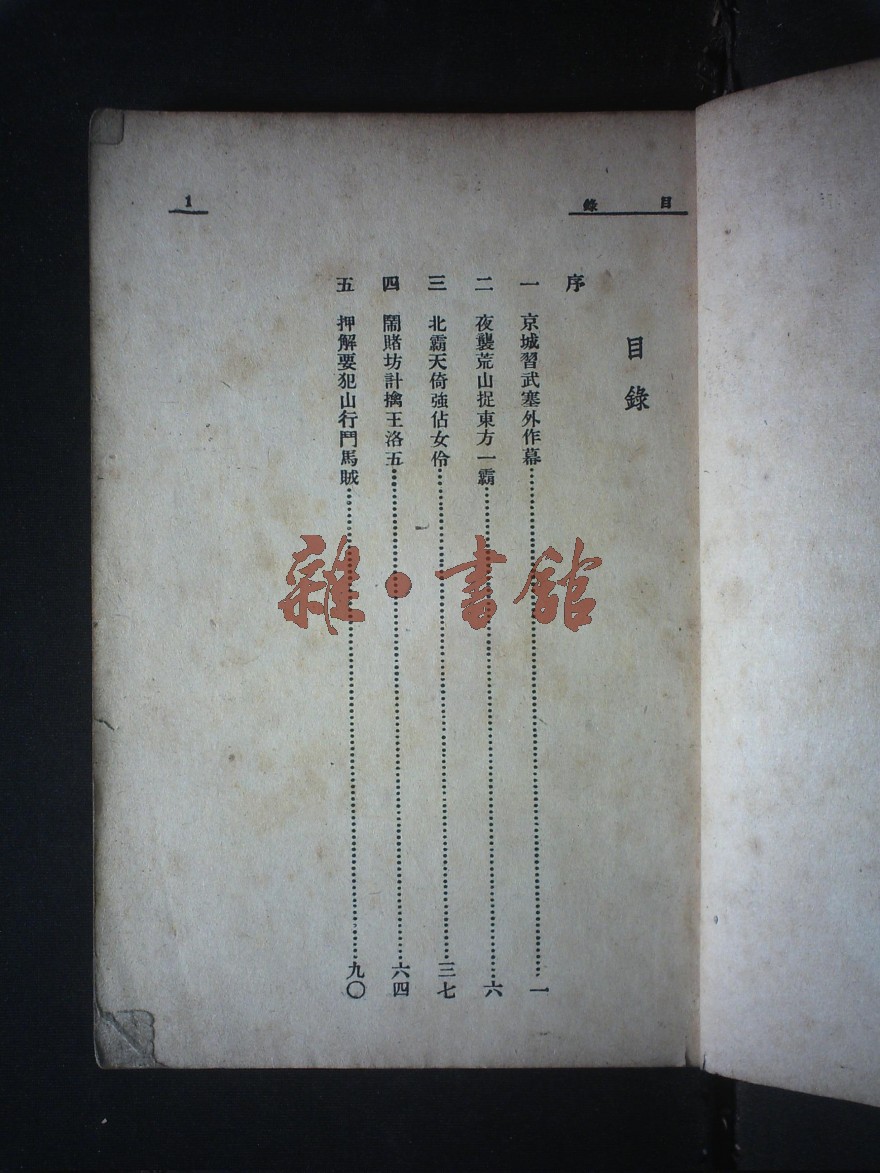 目錄
1
目錄
序
一 京城習武塞外作幕……一
二 夜襲荒山捉東方一霸……六
三 北霸天倚強佔女伶……三七
四 鬧賭坊計擒王洛五……六四
五 押解要犯山行鬥馬賊……九〇
雜·書館